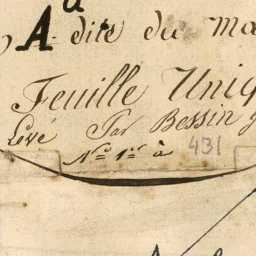 A dite du Ma
Feuille Uniq
Levé Par Bessin g
N.° 1.er à 431